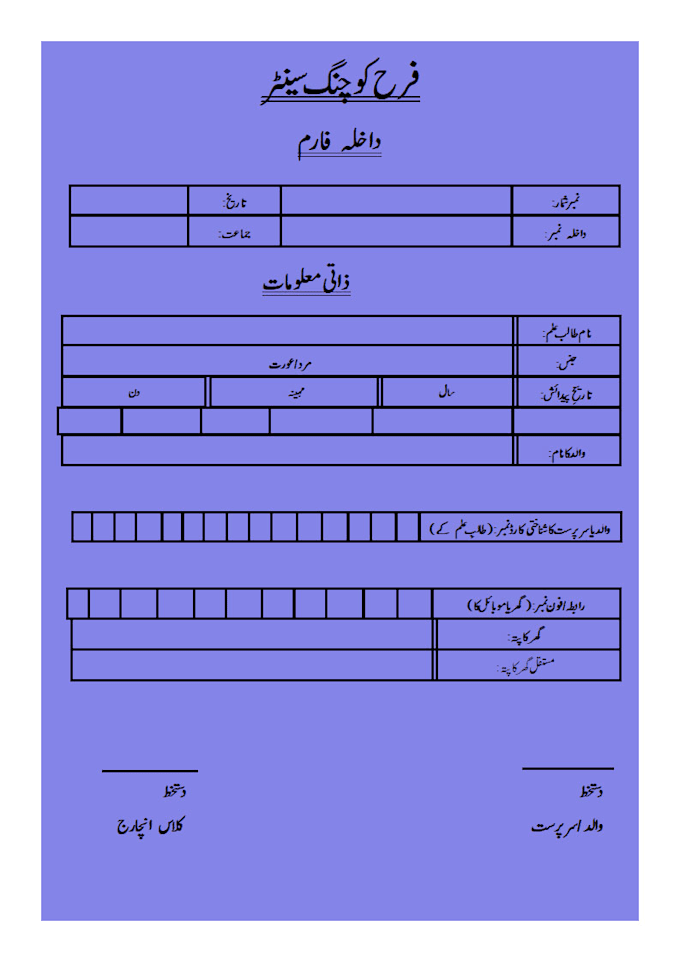 فرح کوچنگ سینٹر
داخلہ فارم
نمبر شمار: تاریخ:
داخلہ نمبر: جماعت:
ذاتی معلومات
نام طالب علم:
جنس: مرد/عورت
تاریخِ پیدائش: سال مہینہ دن
والد کا نام:
والد یا سرپرست کا شناختی کارڈ نمبر: (طالب علم کے)
رابطہ/فون نمبر: (گھر یا موبائل کا)
گھر کا پتہ:
مستقل گھر کا پتہ:
دستخط دستخط
والد/سرپرست کلاس انچارج